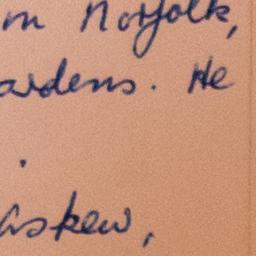 m Norfolk,
ardens. He
.
askew,